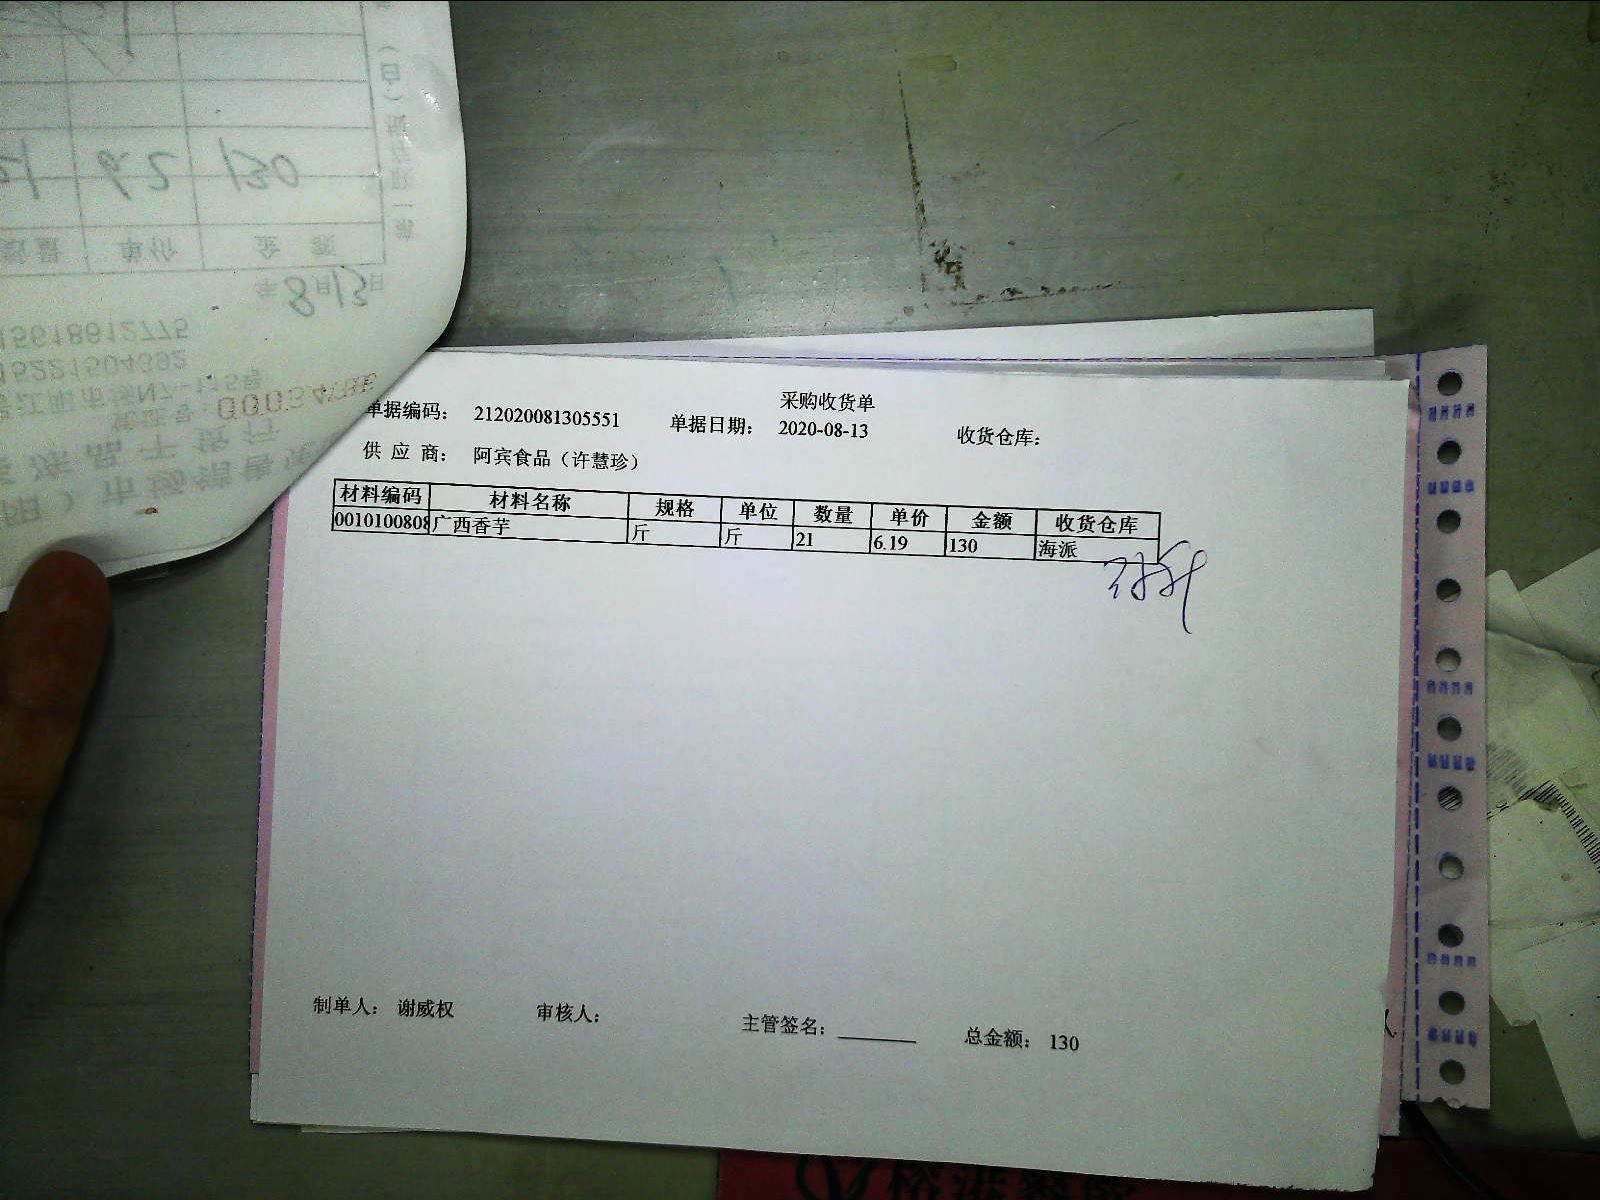 采购收货单
单据编码: 212020081305551 单据日期: 2020-08-13 收货仓库:
供应商: 阿宾食品（许慧珍）
材料编码 材料名称 规格 单位 数量 单价 金额 收货仓库
0010100808 广西香芋 斤 斤 21 6.19 130 海派
制单人: 谢威权 审核人: 主管签名: 总金额: 130
21 6.2 130
数量 单价 金额
年8月13日
15618612775
15221504392